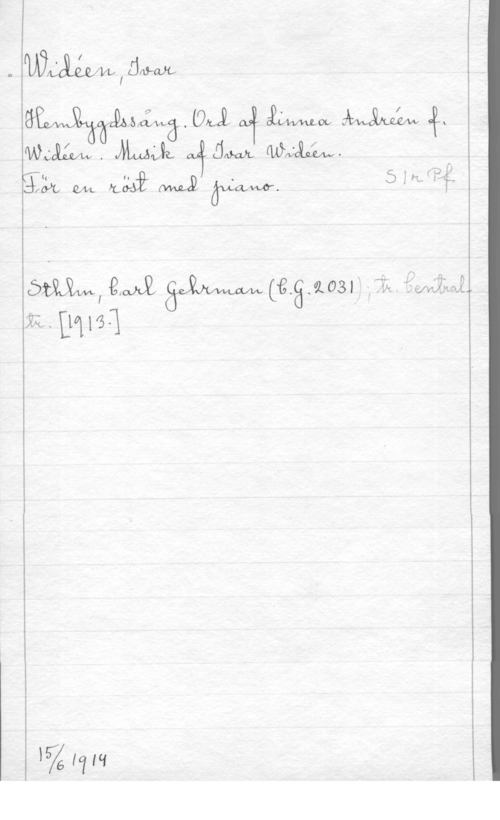 Widéen, Ivar
Hembygdssång. Ord af Linnea Andréen f.
Widéen. Musik af Ivar Widéen.
För en röst med piano. S 1r Pf.
Sthlm, Carl Gehrman (C.G. 2031); tr. Central-
tr. [1913.]
15/6 1914